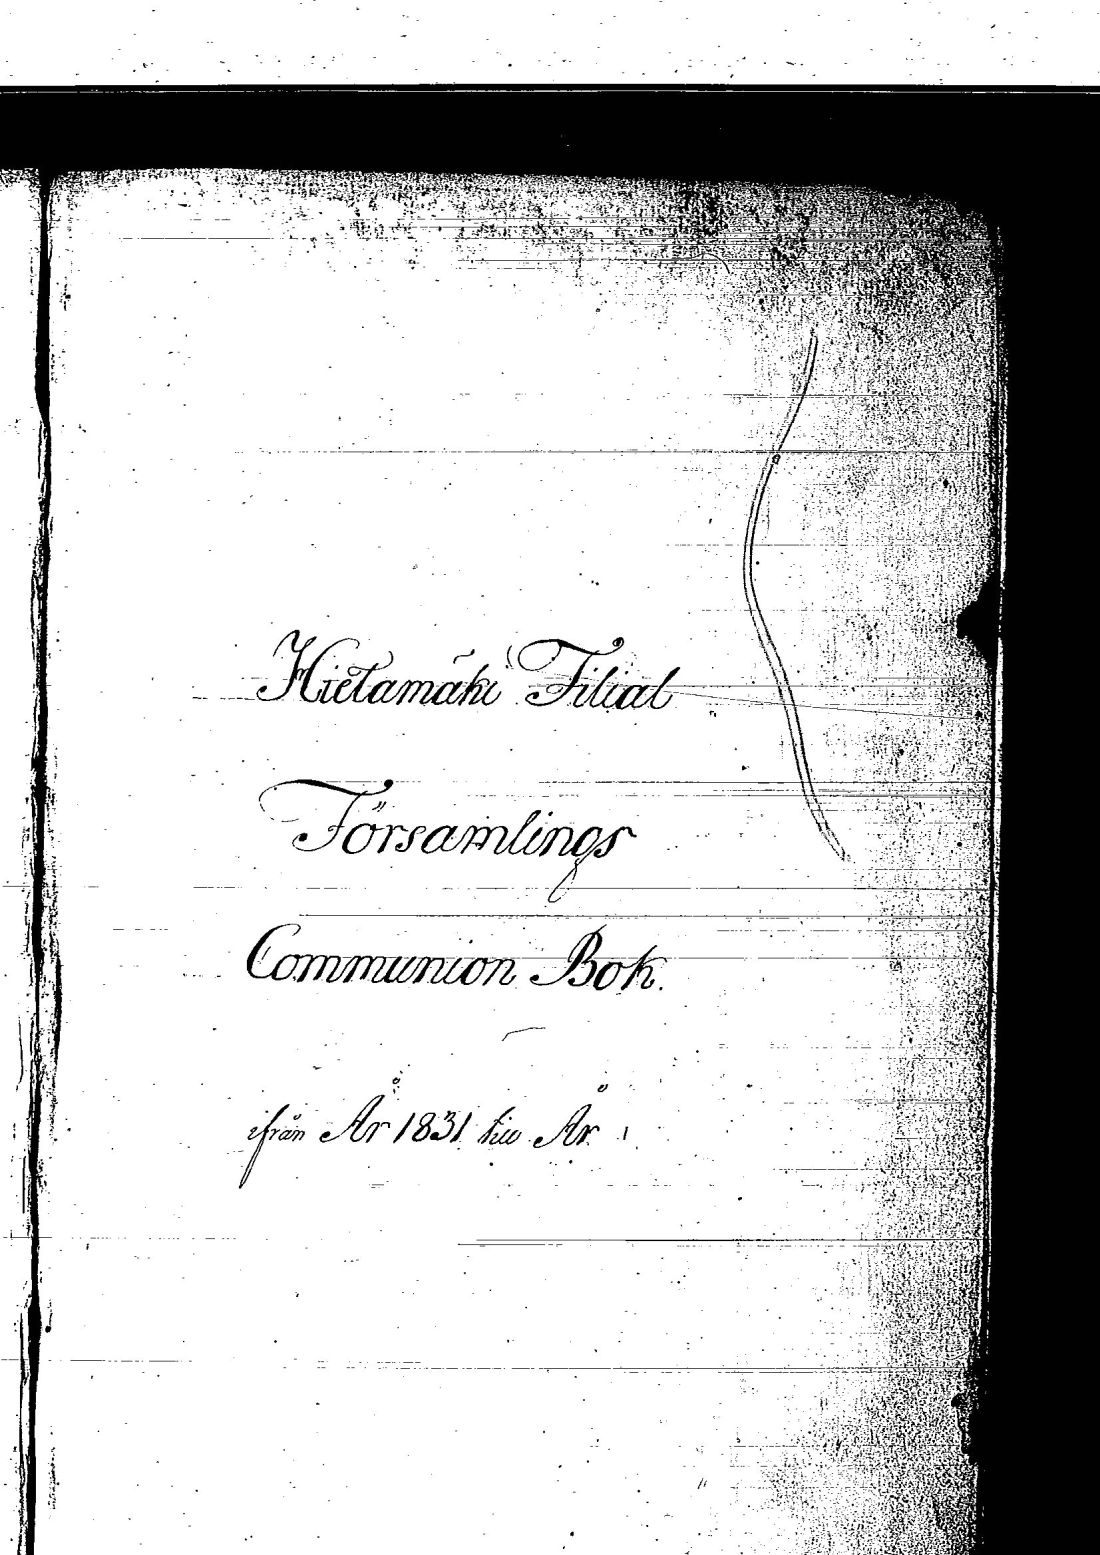 Hietamäki Filial
Församlings
Communion Bok.
ifrån År 1831 till År